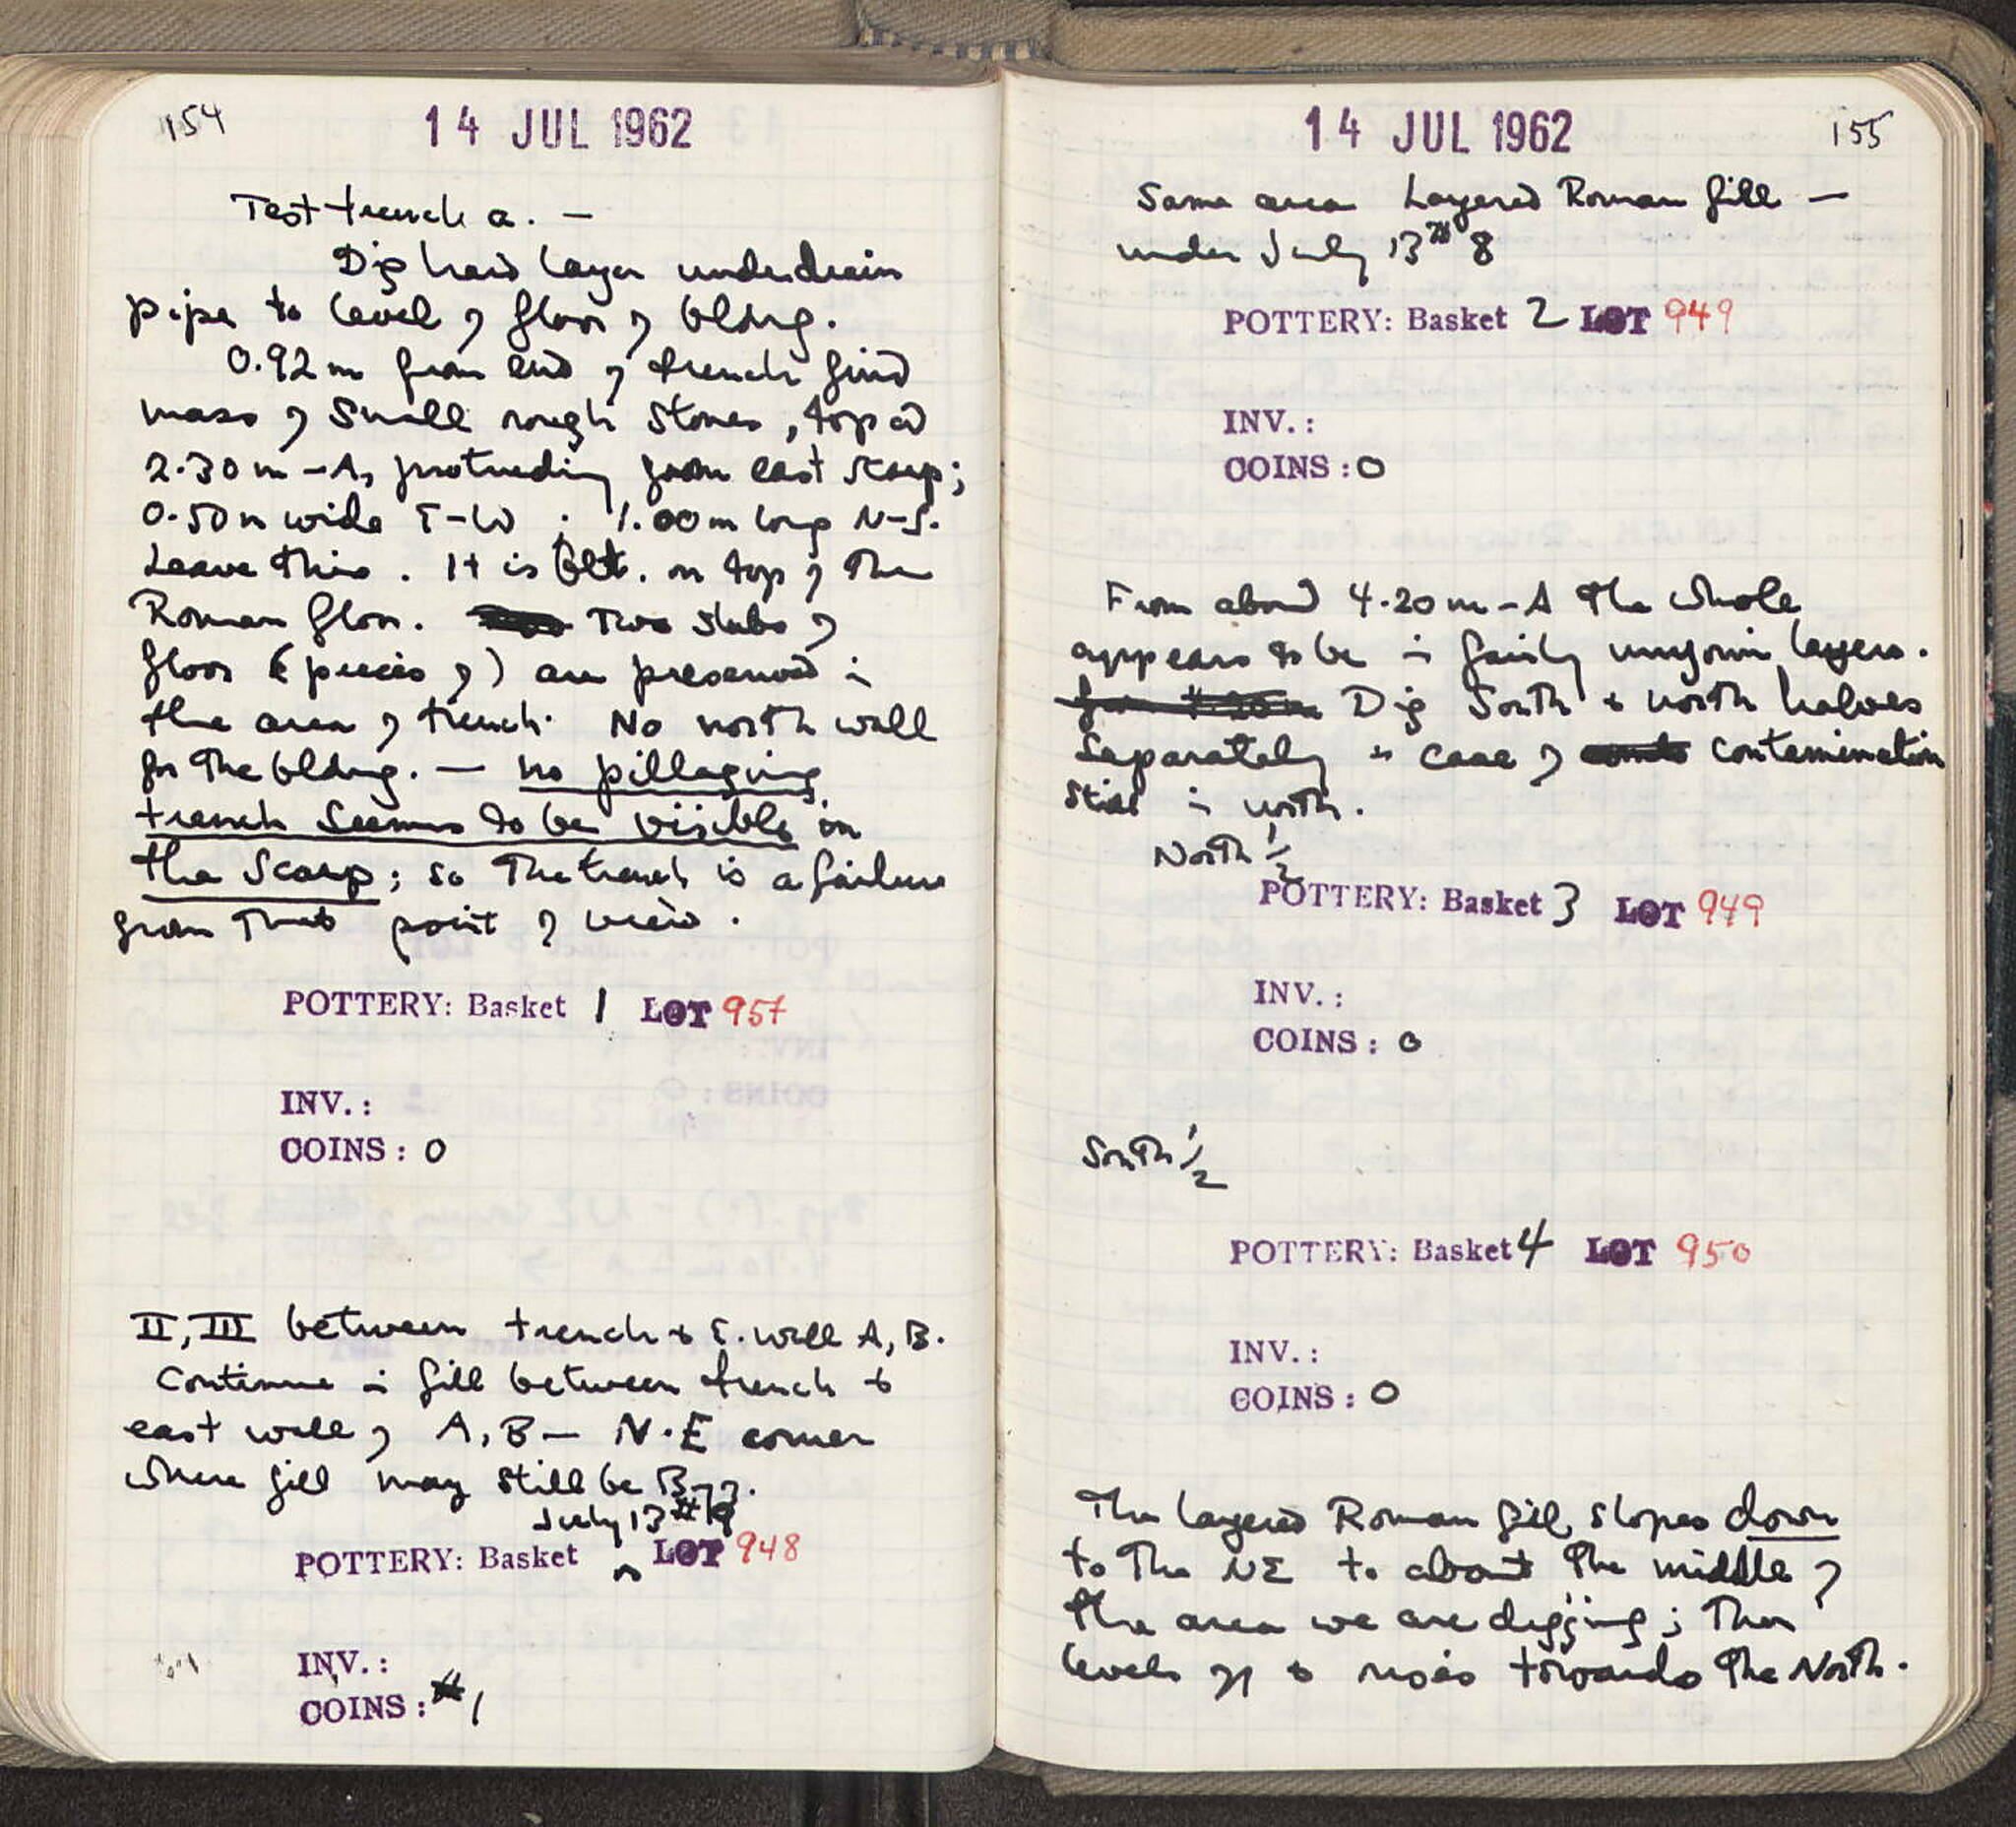 154
14 JUL 1962
Test trench a. —
Dig hard layer under drain
pipe to level of floor of bldng.
0.92 m from end of trench find
mass of small rough stones, top at
2.30 m - A, protruding from east scarp;
0.50 m wide E-W ; 1.00 m long N-S.
Leave this. It is blt. on top of the
Roman floor. Two slabs of
floor (pieces of) are preserved in
the area of trench. No north wall
for the bldng. — no pillaging
trench seems to be visible in
the scarp; so the trench is a failure
from that point of view.
POTTERY: Basket 1 LOT 957
INV.:
COINS: 0
II, III between trench & E. wall A, B.
Continue in fill between trench &
east wall of A, B — N.E corner
where fill may still be Byz.
July 13 #9
POTTERY: Basket ^ LOT 948
INV.:
COINS: # 1
14 JUL 1962
155
Same area Layered Roman fill —
under July 13 # 8
POTTERY: Basket 2 LOT 949
INV.:
COINS: 0
From about 4.20 m - A the whole
appears to be in fairly uniform layers.
Dig South & north halves
separately in case of contamination
still in north.
North 1/2
POTTERY: Basket 3 LOT 949
INV.:
COINS: 0
South 1/2
POTTERY: Basket 4 LOT 950
INV.:
COINS: 0
The layered Roman fill slopes down
to the NE to about the middle of
the area we are digging; then
levels off & rises towards the North.